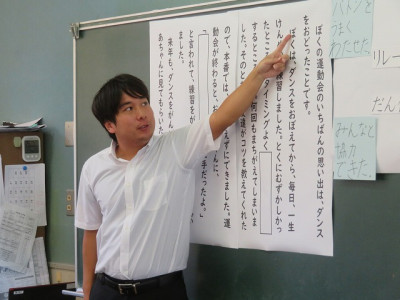 ぼくの運動会のいちばんの思い出は、ダンス
をおどったことです。
ぼくは、ダンスをおぼえてから、毎日、一生
けん
習しました。とくにむずかしかっ
たところ
タイミングよく
するところ
何回もまちがえてしまいま
した。そのと
達がコツを教えてくれた
ので、本番では、
えずにできました。運
動会が終わると、
んに、
手だったよ。」
と言われて、練習をが
ました。
来年も、ダンスをがん
あちゃんに見てもらいた
バトンと
つまく
わたせた
リレー
だん
みんなと
協力
できた。